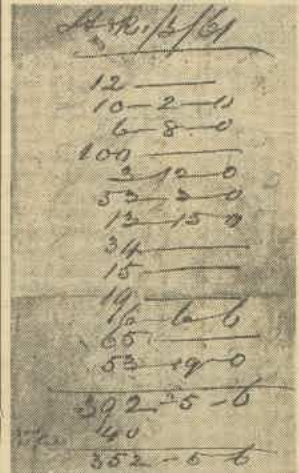 12 ——
10-2-0
6-8-0
100 ——
3-12-0
53-3-0
13-15-0
34 ——
15 ——
19 ——
16-6-6
65 ——
53-19-0
392-5-6
40
352-5-6